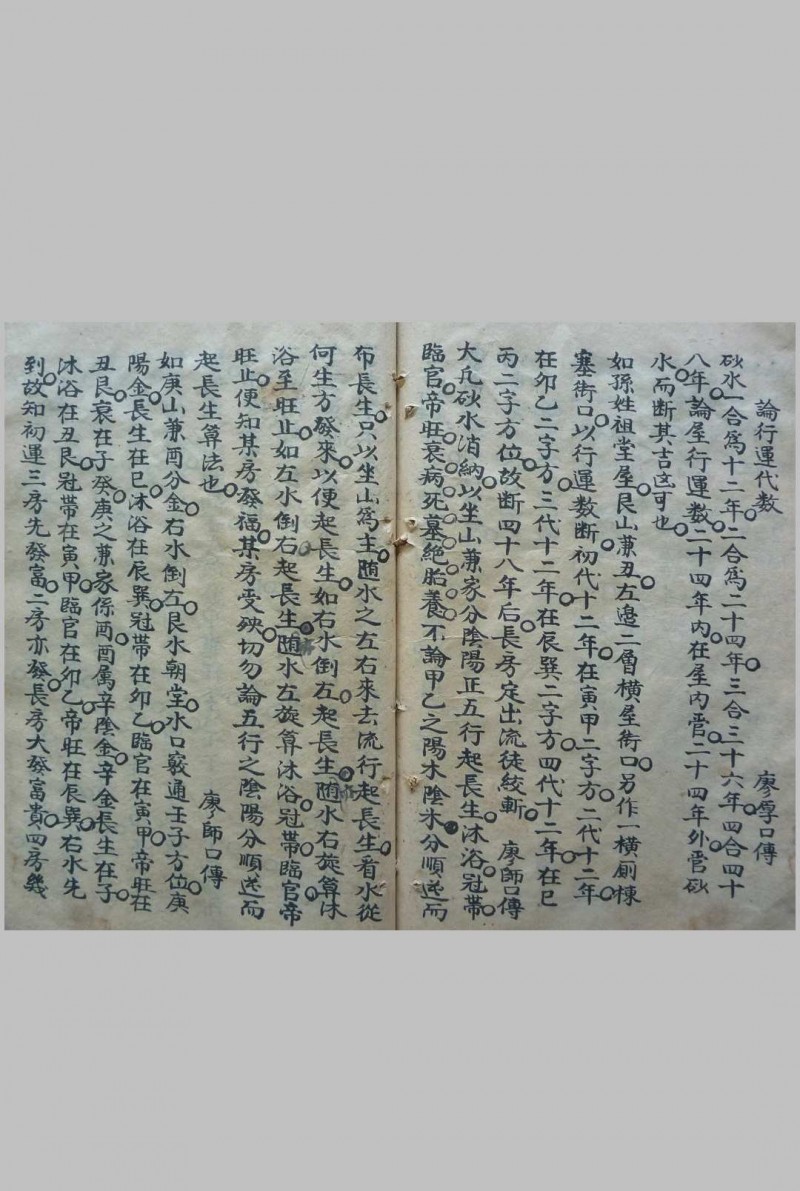 論行運代数 廖雩口傳
砂水一合為十二年。二合為二十四年。三合三十六年。四合四十
八年。論屋行運数。二十四年内。在屋内管。二十四年外。管砂
水。而断其吉凶可也。
如孫姓祖堂屋。艮山兼丑。左邉二層横屋衖口。另作一横厠棟
塞衖口。以行運数断。初代十二年。在寅甲二字方。二代十二年
在卯乙二字方。三代十二年。在辰巽二字方。四代十二年。在巳
丙二字方位。故断四十八年后。長房定出流徒絞斬。 廖師口傳
大凡砂水消納。以坐山兼家分陰陽正五行起長生。沐浴。冠帯。
臨官。帝旺。衰。病。死。墓。絶。胎。養。不論甲乙之陽木陰木。分順逆而
布長生。只以坐山為主。随水之左右來去流行起長生。看水從
何生方發來。以便起長生。如右水倒左。起長生。随水右旋算沐
浴至旺止。如左水倒右。起長生。随水左旋算沐浴。冠帯。臨官。帝
旺止。便知某房發福。某房受殃。切勿論五行之陰陽分順逆而
起長生算法也。 廖師口傳
如庚山兼酉分金。右水倒左。艮水朝堂。水口竅通壬子方位。庚
陽金。長生在巳。沐浴在辰巽。冠帯在卯乙。臨官在寅甲。帝旺在
丑艮。衰在子癸。庚之兼家係酉。酉属辛陰金。辛金長生在子。
沐浴在丑艮。冠帯在寅甲。臨官在卯乙。帝旺在辰巽。右水先
到。故知初運三房先發富。二房亦發。長房大發富貴。四房幾